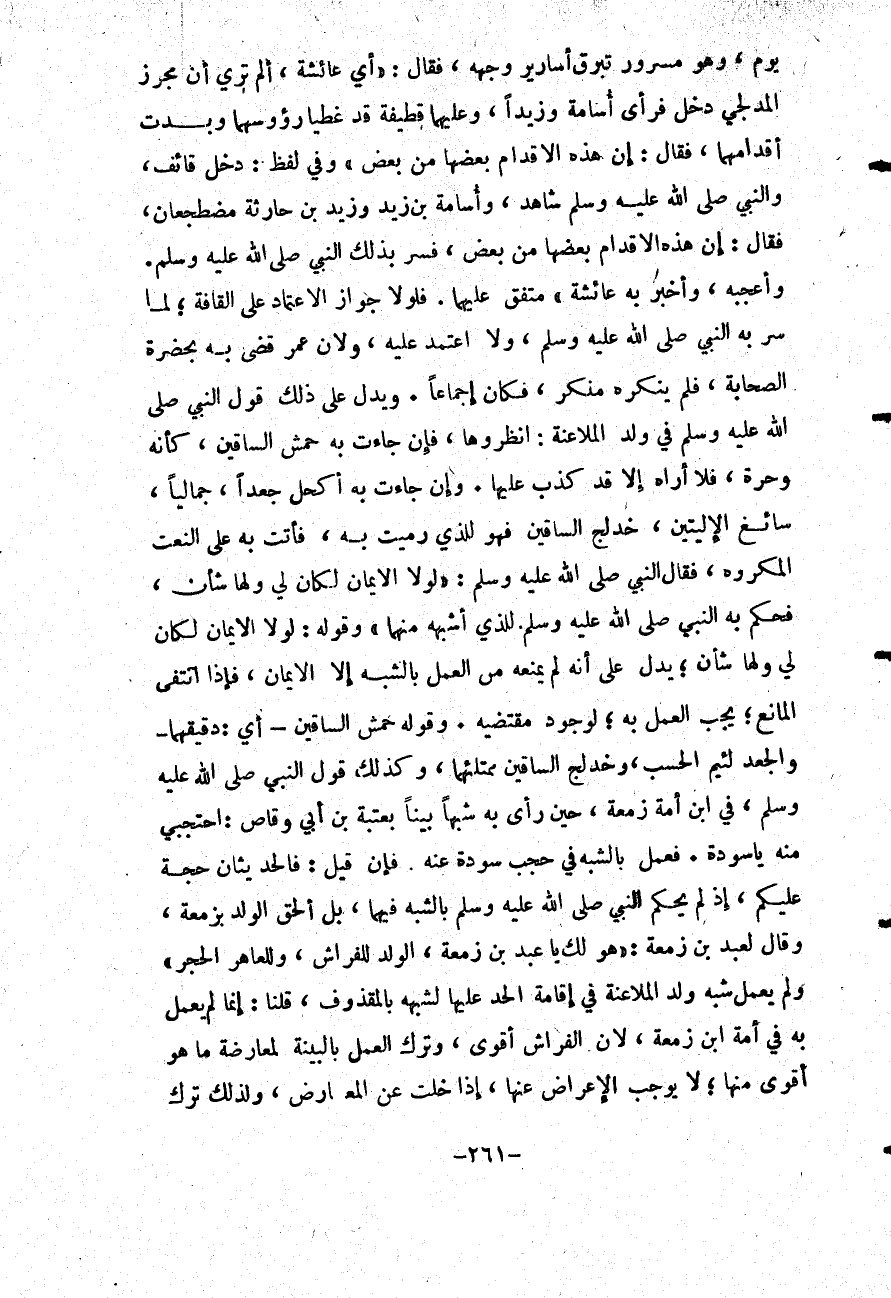 يوم ، وهو مسرور تبرق أسارير وجهه ، فقال : «أي عائشة ، ألم تري أن مجرز
المدلجي دخل فرأى أُسامة وزيداً ، وعليها قطيفة قد غطيا رؤوسها وبدت
أقدامها ، فقال : إن هذه الاقدام بعضها من بعض » وفي لفظ : دخل قائف ،
والنبي صلى الله عليه وسلم شاهد ، وأُسامة بن زيد وزيد بن حارثة مضطجعان ،
فقال : إن هذه الاقدام بعضها من بعض ، فسر بذلك النبي صلى الله عليه وسلم .
وأعجبه ، وأخبر به عائشة » متفق عليها . فلولا جواز الاعتماد على القافة ؛ لما
سر به النبي صلى الله عليه وسلم ، ولا اعتمد عليه ، ولان عمر قضى به بحضرة
الصحابة ، فلم ينكره منكر ، فكان إجماعاً . ويدل على ذلك قول النبي صلى
الله عليه وسلم في ولد الملاعنة : انظروها ، فإن جاءت به حمش الساقين ، كأنه
وحرة ، فلا أراه إلا قد كذب عليها . وإن جاءت به أكحل جعداً ، جمالياً ،
سائغ الإليتين ، خدلج الساقين فهو للذي رميت به ، فأتت به على النعت
المكروه ، فقال النبي صلى الله عليه وسلم : «لولا الايمان لكان لي ولها شأن ،
فحكم به النبي صلى الله عليه وسلم. للذي أشبه منها » وقوله : لولا الايمان لكان
لي ولها شأن ؛ يدل على أنه لم يمنعه من العمل بالشبه إلا الايمان ، فإذا انتفى
المانع ؛ يجب العمل به ؛ لوجود مقتضيه . وقوله خمش الساقين – أي : دقيقها –
والجعد لئيم الحسب ، وخدلج الساقين ممتلئها ، وكذلك قول النبي صلى الله عليه
وسلم ، في ابن أمة زمعة ، حين رأى به شبهاً بيناً بعتبة بن أبي وقاص : احتجبي
منه ياسودة . فعمل بالشبه في حجب سودة عنه . فإن قيل : فالحديثان حجة
عليكم ، إذ لم يحكم النبي صلى الله عليه وسلم بالشبه فيها ، بل ألحق الولد بزمعة ،
وقال لعبد بن زمعة : «هو لك يا عبد بن زمعة ، الولد للفراش ، وللعاهر الحجر »
ولم يعمل شبه ولد الملاعنة في إقامة الحد عليها لشبهه بالمقذوف ، قلنا : إنما لم يعمل
به في أمة ابن زمعة ، لان الفراش أقوى ، وترك العمل بالبينة لمعارضة ما هو
أقوى منها ؛ لا يوجب الإعراض عنها ، إذا خلت عن المعارض ، ولذلك ترك
–٢٦١–